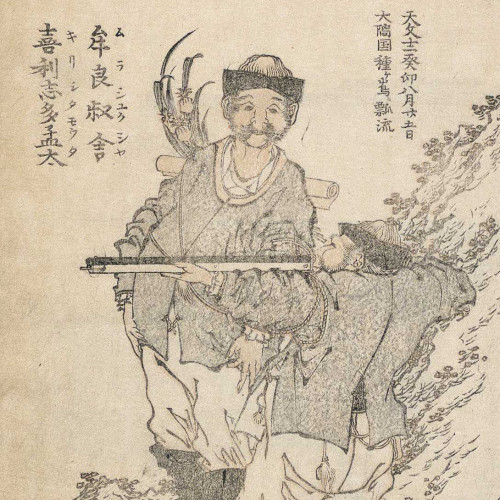 天文十二癸卯八月廿五日
大隅国種ヶ嶌飄流
ムラシユクシヤ
牟良叔舎
キリシタモウタ
喜利志多孟太